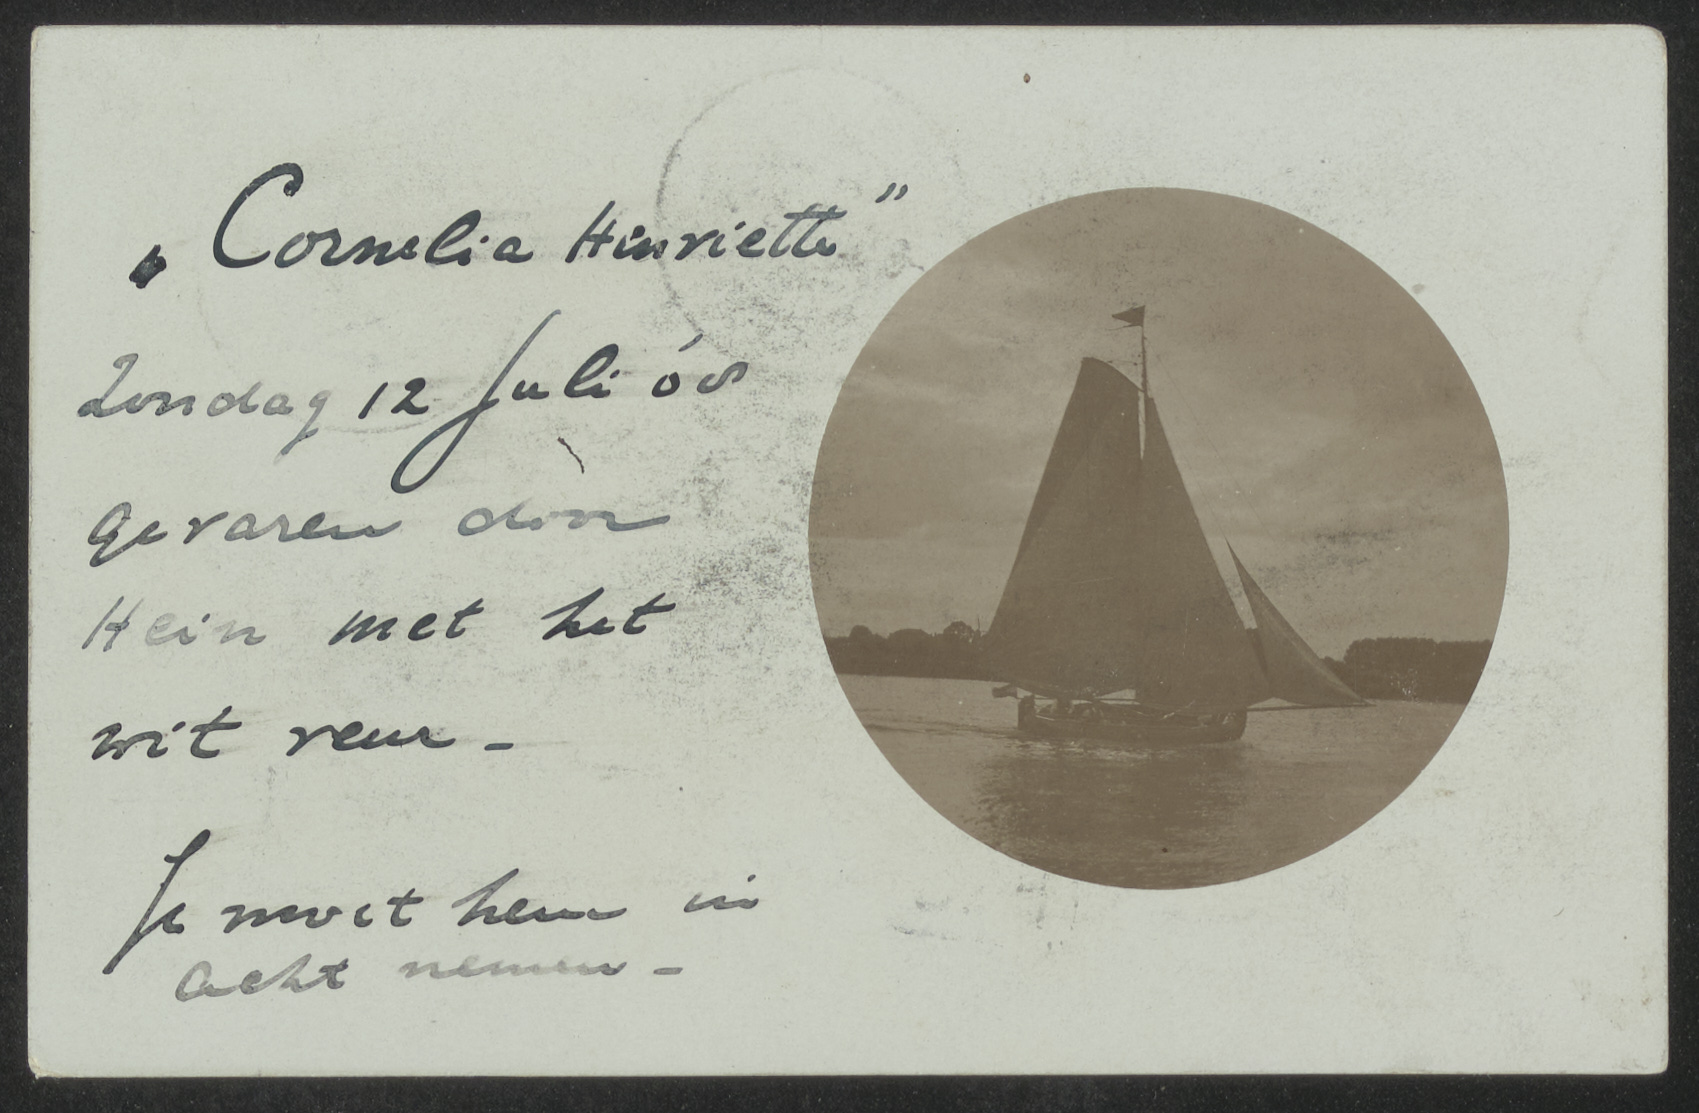 „Cornelia Henriette”
Zondag 12 Juli 08
gevaren door
Hein met het
wit
Je moet hem in
acht nemen -